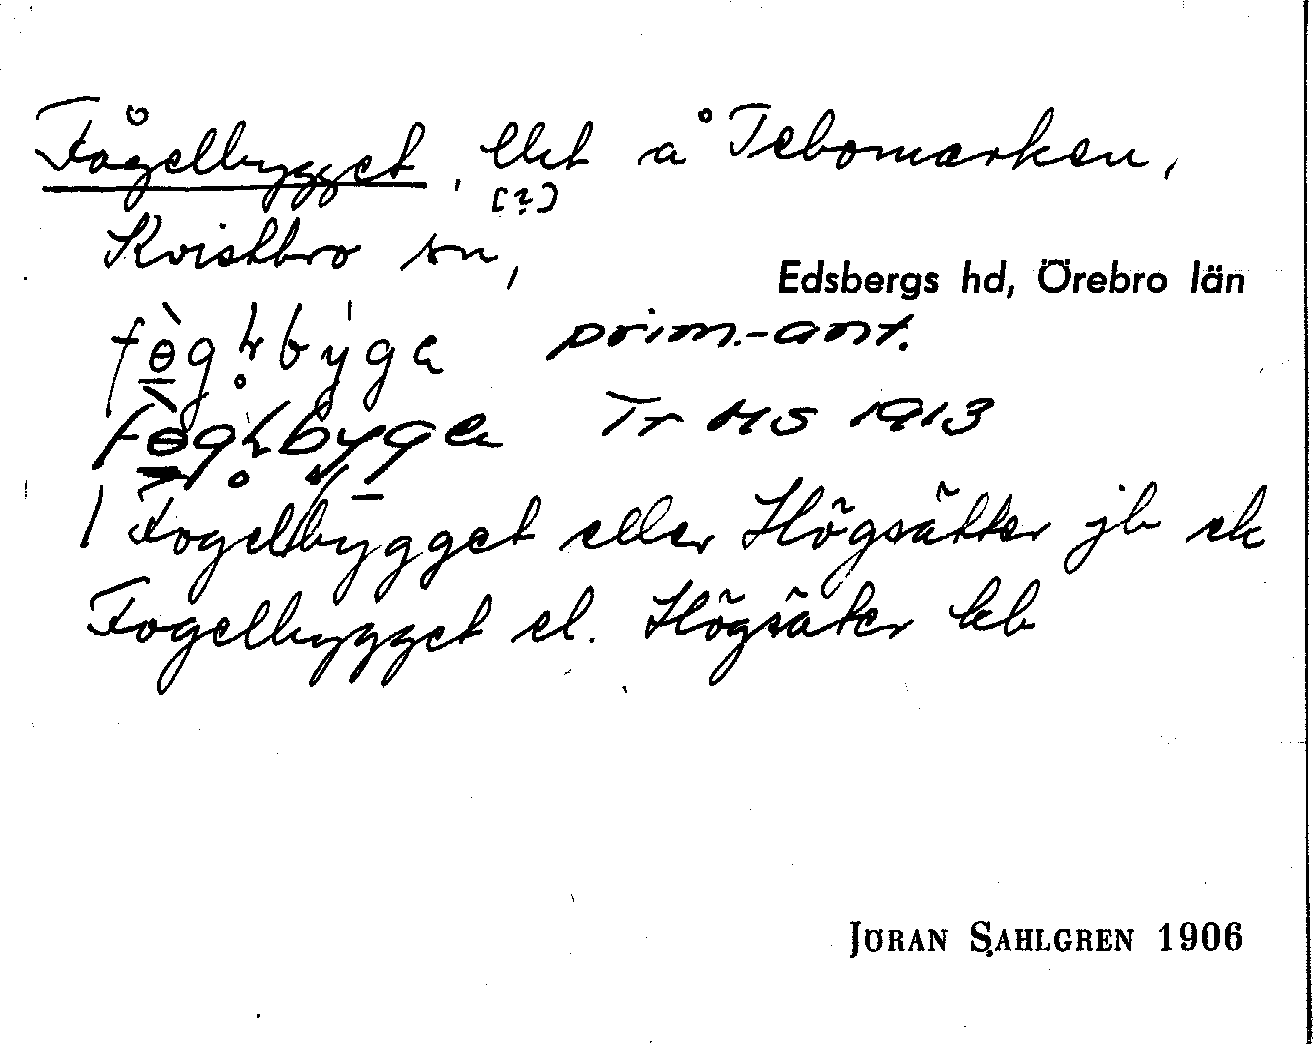 Fågelbygget, llht å Tebomarken,
[?]
Kvistbro sn,
Edsbergs hd, Örebro län
prim.-ant.
Tr HS 1913
Fogelbygget eller Högsätter jb ek
Fogelbygget el. Högsäter kb
JÖRAN SAHLGREN 1906